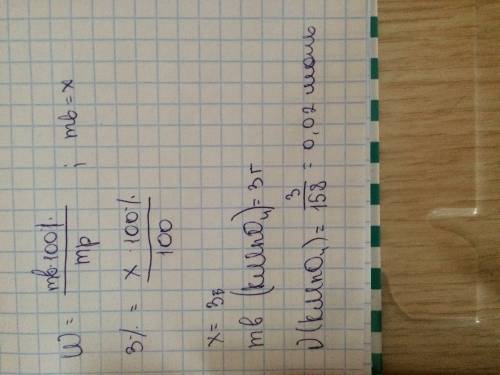 W = mв100% / mp ; mв = x
3% = x · 100% / 100
x = 3г
mв (KMnO₄) = 3г
ν(KMnO₄) = 3 / 158 = 0,02 моль